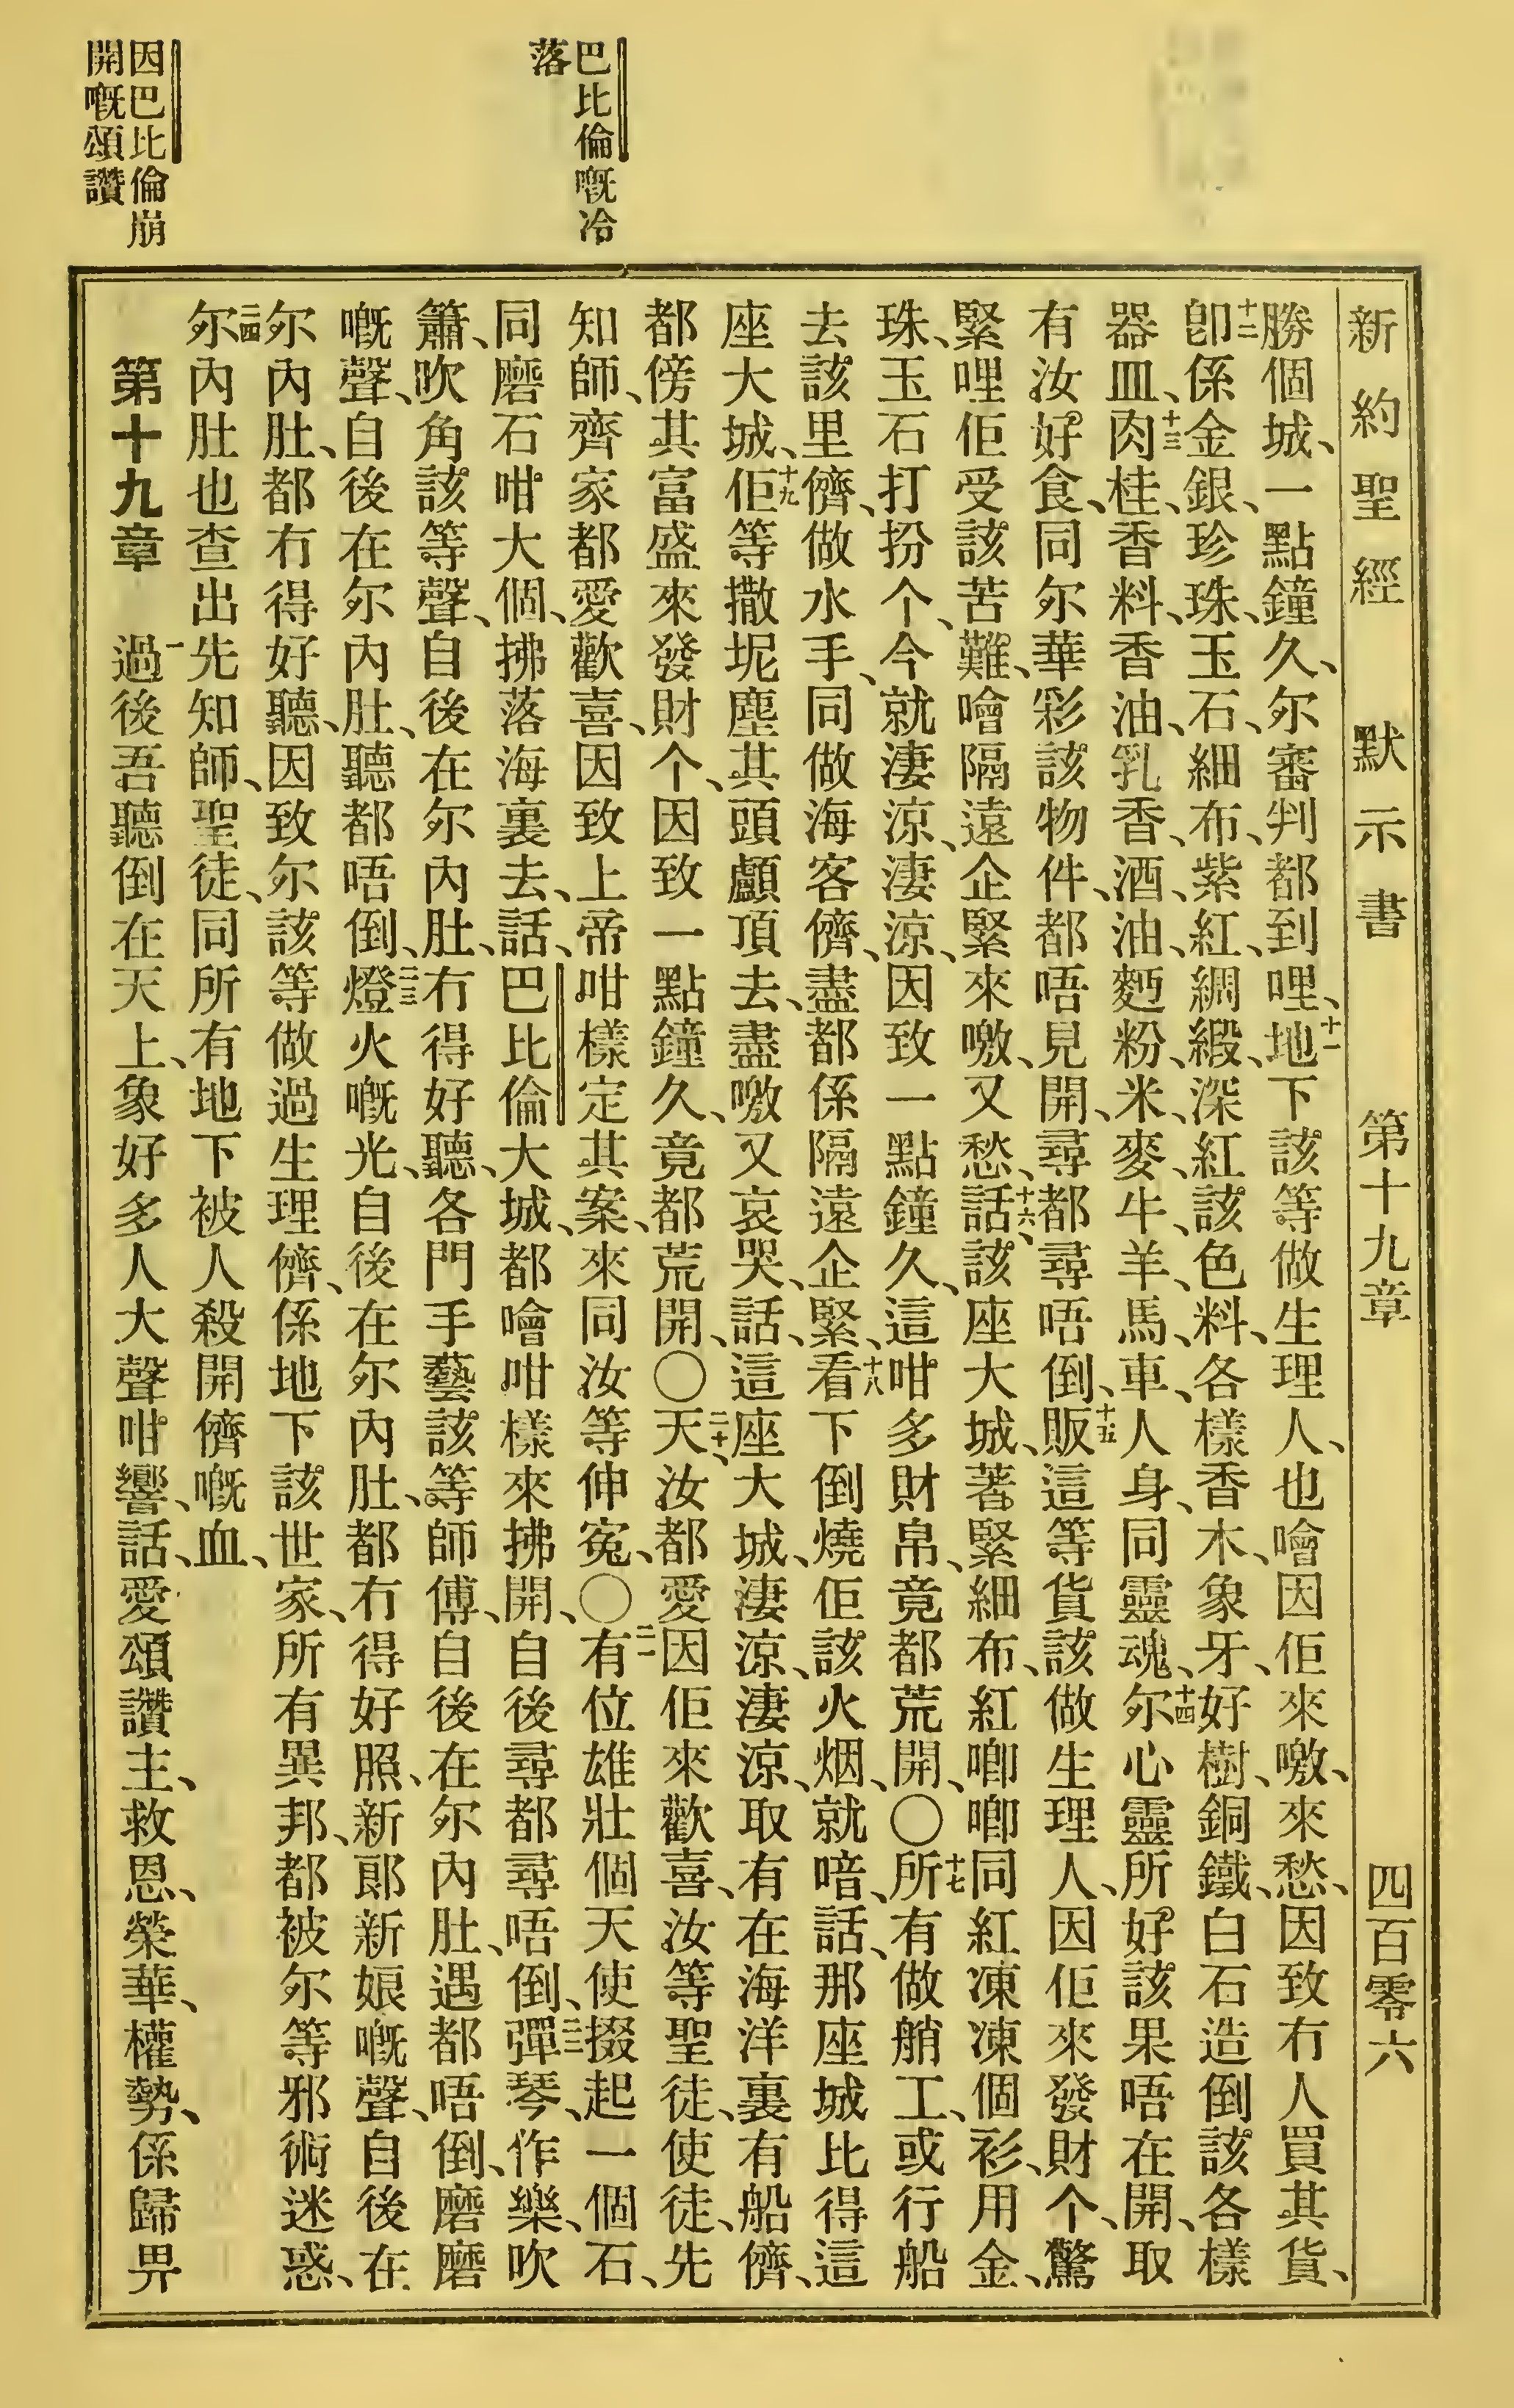 新約聖經 默示書 第十九章 四百零六
巴比倫嘅冷
落
因巴比倫崩
開嘅頌讚
勝個城、一點鐘久、尔審判都到哩、十一地下該等做生理人、也噲因佢來噭、來愁、因致冇人買其貨、
十二卽係金銀、珍珠、玉石、細布、紫紅、綢緞、深紅該色料、各樣香木、象牙、好樹、銅鐵、白石造倒該各樣
器皿、十三肉桂、香料、香油、乳香、酒、油、麪粉、米、麥、牛、羊、馬、車、人身、同靈魂、十四尔心靈所好該果唔在開、取
有汝好食、同尔華彩該物件、都唔見開、尋都尋唔倒、十五販這等貨該做生理人、因佢來發財个、驚
緊哩佢受該苦難、噲隔遠企緊來噭、又愁、十六話、該座大城、著緊細布、紅啣啣同紅凍凍個衫、用金、
珠、玉石打扮个、今就淒涼、淒涼、因致一點鐘久、這咁多財帛、竟都荒開、〇十七所有做艄工、或行船
去該里儕、做水手、同做海客儕、盡都係隔遠企緊、十八看下倒燒佢該火烟、就喑、話、那座城比得這
座大城、十九佢等撒坭塵其頭顱頂去、盡噭又哀哭、話、這座大城、淒涼、淒涼、取有在海洋裏有船儕、
都傍其富盛來發財个、因致一點鐘久、竟都荒開、〇二十天、汝都愛因佢來歡喜、汝等聖徒、使徒、先
知師、齊家都愛歡喜、因致上帝咁樣定其案、來同汝等伸寃、〇二一有位雄壯個天使掇起一個石、
同磨石咁大個、拂落海裏去、話、巴比倫大城、都噲咁樣來拂開、自後尋都尋唔倒、二二彈琴、作樂、吹
簫、吹角該等聲、自後在尔內肚、冇得好聽、各門手藝該等師傅、自後在尔內肚、遇都唔倒、磨磨
嘅聲、自後在尔內肚、聽都唔倒、二三燈火嘅光、自後在尔內肚、都冇得好照、新郞新娘嘅聲、自後在
尔內肚、都冇得好聽、因致尔該等做過生理儕、係地下該世家、所有異邦、都被尔等邪術迷惑、
二四尔內肚也查出先知師、聖徒、同所有地下被人殺開儕嘅血、
第十九章 一過後吾聽倒在天上、象好多人大聲咁響、話、愛頌讚主、救恩、榮華、權勢、係歸畀